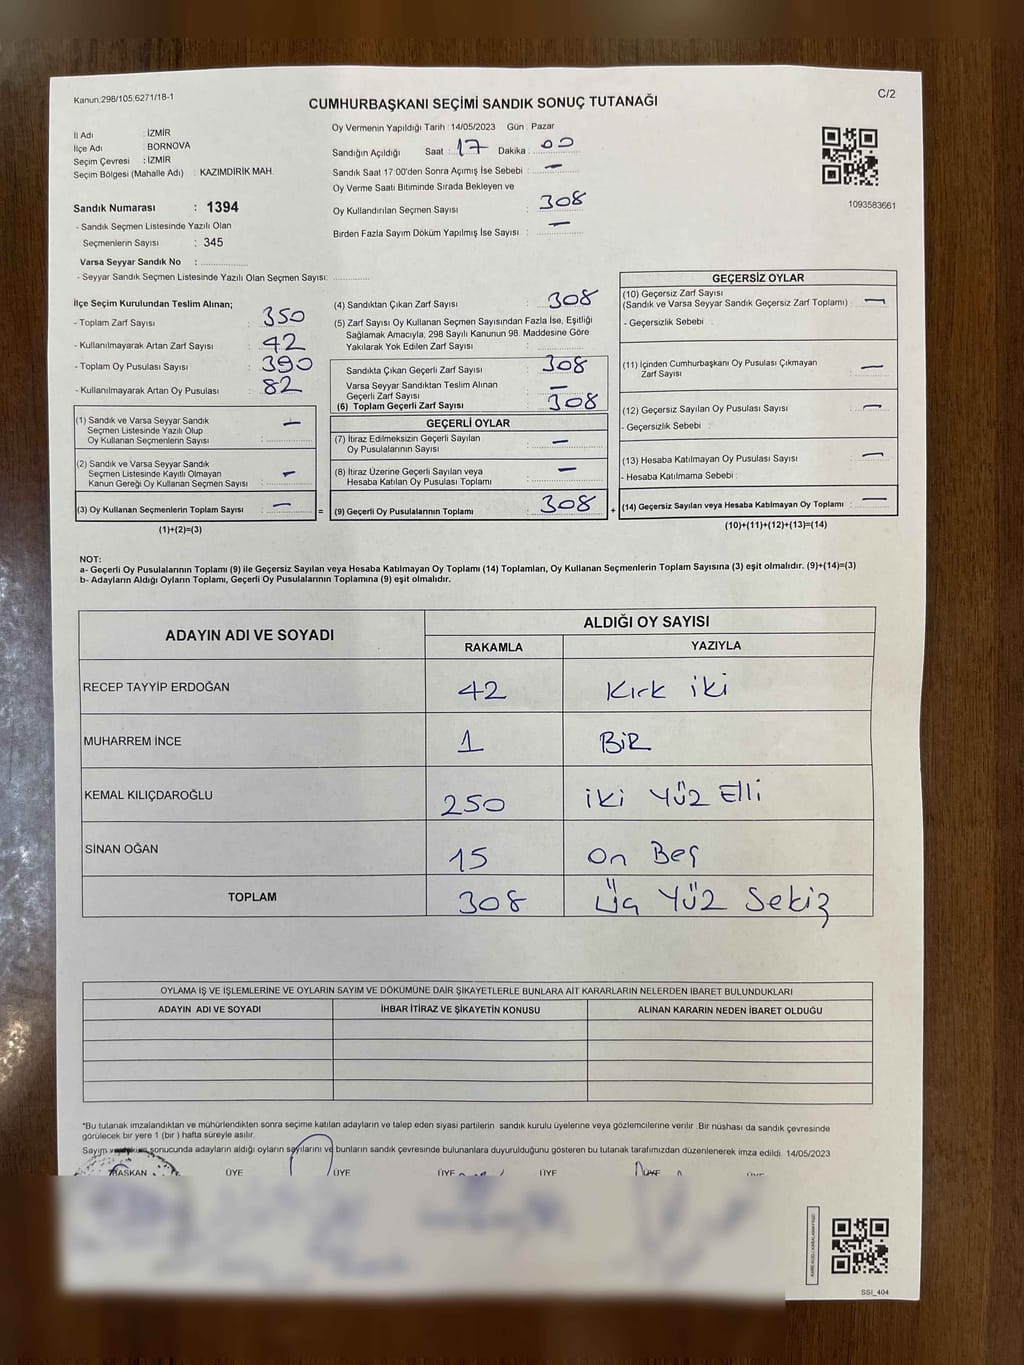 Kanun,298/105,6271/18-1
C/2
CUMHURBAŞKANI SEÇİMİ SANDIK SONUÇ TUTANAĞI
İl Adı : İZMİR
İlçe Adı : BORNOVA
Seçim Çevresi : İZMİR
Seçim Bölgesi (Mahalle Adı) : KAZIMDİRİK MAH.
Sandık Numarası : 1394
- Sandık Seçmen Listesinde Yazılı Olan
Seçmenlerin Sayısı : 345
Varsa Seyyar Sandık No :
- Seyyar Sandık Seçmen Listesinde Yazılı Olan Seçmen Sayısı:
Oy Vermenin Yapıldığı Tarih : 14/05/2023 Gün : Pazar
Sandığın Açıldığı Saat : 17 Dakika : 00
Sandık Saat 17:00'den Sonra Açımış İse Sebebi : —
Oy Verme Saati Bitiminde Sırada Bekleyen ve
Oy Kullandırılan Seçmen Sayısı : 308
Birden Fazla Sayım Döküm Yapılmış İse Sayısı : —
1093583661
İlçe Seçim Kurulundan Teslim Alınan;
- Toplam Zarf Sayısı : 350
- Kullanılmayarak Artan Zarf Sayısı : 42
- Toplam Oy Pusulası Sayısı : 390
- Kullanılmayarak Artan Oy Pusulası : 82
(1) Sandık ve Varsa Seyyar Sandık
Seçmen Listesinde Yazılı Olup
Oy Kullanan Seçmenlerin Sayısı : —
(2) Sandık ve Varsa Seyyar Sandık
Seçmen Listesinde Kayıtlı Olmayan
Kanun Gereği Oy Kullanan Seçmen Sayısı : —
(3) Oy Kullanan Seçmenlerin Toplam Sayısı : —
(1)+(2)=(3)
=
(4) Sandıktan Çıkan Zarf Sayısı : 308
(5) Zarf Sayısı Oy Kullanan Seçmen Sayısından Fazla İse, Eşitliği
Sağlamak Amacıyla, 298 Sayılı Kanunun 98. Maddesine Göre
Yakılarak Yok Edilen Zarf Sayısı :
Sandıkta Çıkan Geçerli Zarf Sayısı : 308
Varsa Seyyar Sandıktan Teslim Alınan
Geçerli Zarf Sayısı : —
(6) Toplam Geçerli Zarf Sayısı : 308
GEÇERLİ OYLAR
(7) İtiraz Edilmeksizin Geçerli Sayılan
Oy Pusulalarının Sayısı : —
(8) İtiraz Üzerine Geçerli Sayılan veya
Hesaba Katılan Oy Pusulası Toplamı : —
(9) Geçerli Oy Pusulalarının Toplamı : 308
+
GEÇERSİZ OYLAR
(10) Geçersiz Zarf Sayısı
(Sandık ve Varsa Seyyar Sandık Geçersiz Zarf Toplamı) : —
- Geçersizlik Sebebi :
(11) İçinden Cumhurbaşkanı Oy Pusulası Çıkmayan
Zarf Sayısı : —
(12) Geçersiz Sayılan Oy Pusulası Sayısı : —
- Geçersizlik Sebebi :
(13) Hesaba Katılmayan Oy Pusulası Sayısı : —
- Hesaba Katılmama Sebebi :
(14) Geçersiz Sayılan veya Hesaba Katılmayan Oy Toplamı : —
(10)+(11)+(12)+(13)=(14)
NOT:
a- Geçerli Oy Pusulalarının Toplamı (9) ile Geçersiz Sayılan veya Hesaba Katılmayan Oy Toplamı (14) Toplamları, Oy Kullanan Seçmenlerin Toplam Sayısına (3) eşit olmalıdır. (9)+(14)=(3)
b- Adayların Aldığı Oyların Toplamı, Geçerli Oy Pusulalarının Toplamına (9) eşit olmalıdır.
ADAYIN ADI VE SOYADI
ALDIĞI OY SAYISI
RAKAMLA YAZIYLA
RECEP TAYYİP ERDOĞAN 42 Kırk iki
MUHARREM İNCE 1 BİR
KEMAL KILIÇDAROĞLU 250 iki Yüz Elli
SİNAN OĞAN 15 On Beş
TOPLAM 308 Üç Yüz Sekiz
OYLAMA İŞ VE İŞLEMLERİNE VE OYLARIN SAYIM VE DÖKÜMÜNE DAİR ŞİKAYETLERLE BUNLARA AİT KARARLARIN NELERDEN İBARET BULUNDUKLARI
ADAYIN ADI VE SOYADI İHBAR İTİRAZ VE ŞİKAYETİN KONUSU ALINAN KARARIN NEDEN İBARET OLDUĞU
*Bu tutanak imzalandıktan ve mühürlendikten sonra seçime katılan adayların ve talep eden siyasi partilerin sandık kurulu üyelerine veya gözlemcilerine verilir. Bir nüshası da sandık çevresinde
görülecek bir yere 1 (bir) hafta süreyle asılır.
Sayım sonucunda adayların aldığı oyların sayılarını ve bunların sandık çevresinde bulunanlara duyurulduğunu gösteren bu tutanak tarafımızdan düzenlenerek imza edildi. 14/05/2023
BAŞKAN ÜYE ÜYE ÜYE ÜYE ÜYE
SSI_404